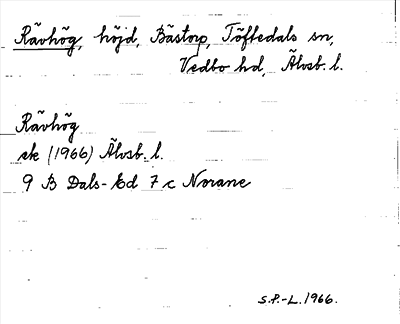 Rävhög, höjd, Bästorp, Töftedals sn,
Vedbo hd, Älvsb. l.
Rävhög
ek (1966) Älvsb. l.
9 B Dals-Ed 7 c Norane
S.P.-L. 1966.